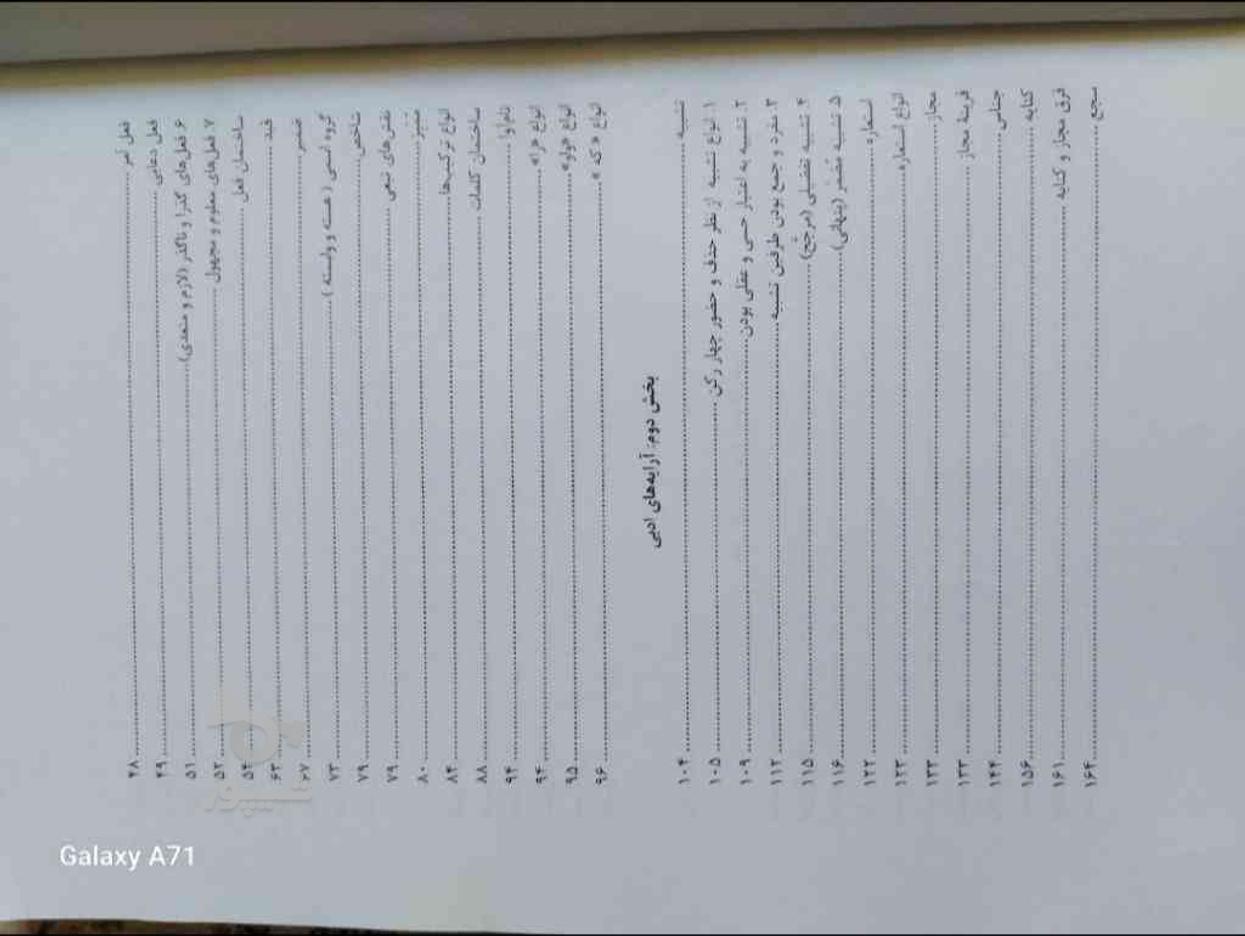 فعل امر ........ ۴۸
فعل دعایی ........ ۴۹
۶. فعل‌های گذرا و ناگذر (لازم و متعدی) ........ ۵۱
۷. فعل‌های معلوم و مجهول ........ ۵۲
ساختمان فعل ........ ۵۴
قید ........ ۶۳
ضمیر ........ ۶۷
گروه اسمی (هسته و وابسته) ........ ۷۳
شاخص ........ ۷۹
نقش‌های تبعی ........ ۷۹
ممیّز ........ ۸۰
انواع ترکیب‌ها ........ ۸۴
ساختمان کلمات ........ ۸۸
نام‌آوا ........ ۹۴
انواع «را» ........ ۹۴
انواع «واو» ........ ۹۵
انواع «که» ........ ۹۶
بخش دوم: آرایه‌های ادبی
تشبیه ........ ۱۰۴
۱. انواع تشبیه از نظر حذف و حضور چهار رکن ........ ۱۰۵
۲. تشبیه به اعتبار حسی و عقلی بودن ........ ۱۰۹
۳. مفرد و جمع بودن طرفین تشبیه ........ ۱۱۲
۴. تشبیه تفضیلی (مرجّح) ........ ۱۱۵
۵. تشبیه مُضمَر (پنهانی) ........ ۱۱۶
استعاره ........ ۱۲۲
انواع استعاره ........ ۱۲۳
مجاز ........ ۱۳۳
قرینۀ مجاز ........ ۱۳۳
جناس ........ ۱۴۴
کنایه ........ ۱۵۶
فرق مجاز و کنایه ........ ۱۶۱
سجع ........ ۱۶۴
شیپور
Galaxy A71